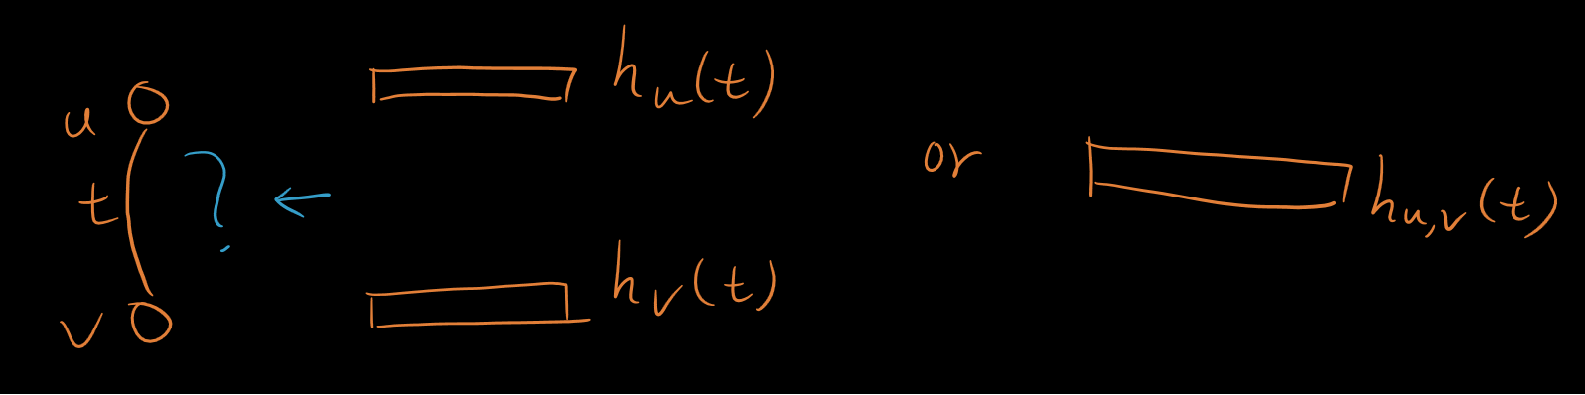 u
t
v
?
h_u(t)
h_v(t)
or
h_{u,v}(t)